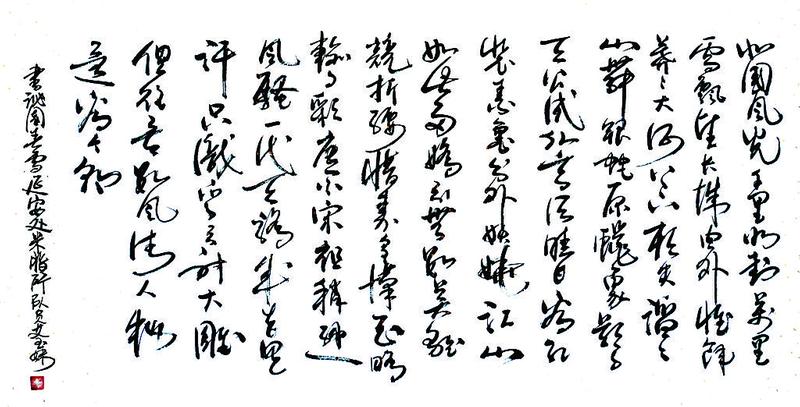 北國风光千里冰封萬里
雪飘望长城内外惟餘
莽莽大河上下顿失滔滔
山舞银蛇原驰蜡象欲与
天公试比高须晴日看红
装素裹分外妖娆江山
如此多娇引無数英雄
竞折腰惜秦皇汉武略
输文彩唐宗宋祖稍逊
风骚一代天骄成吉思
汗只識弯弓射大雕
俱往矣数风流人物
还看今朝
书沁園春雪延安